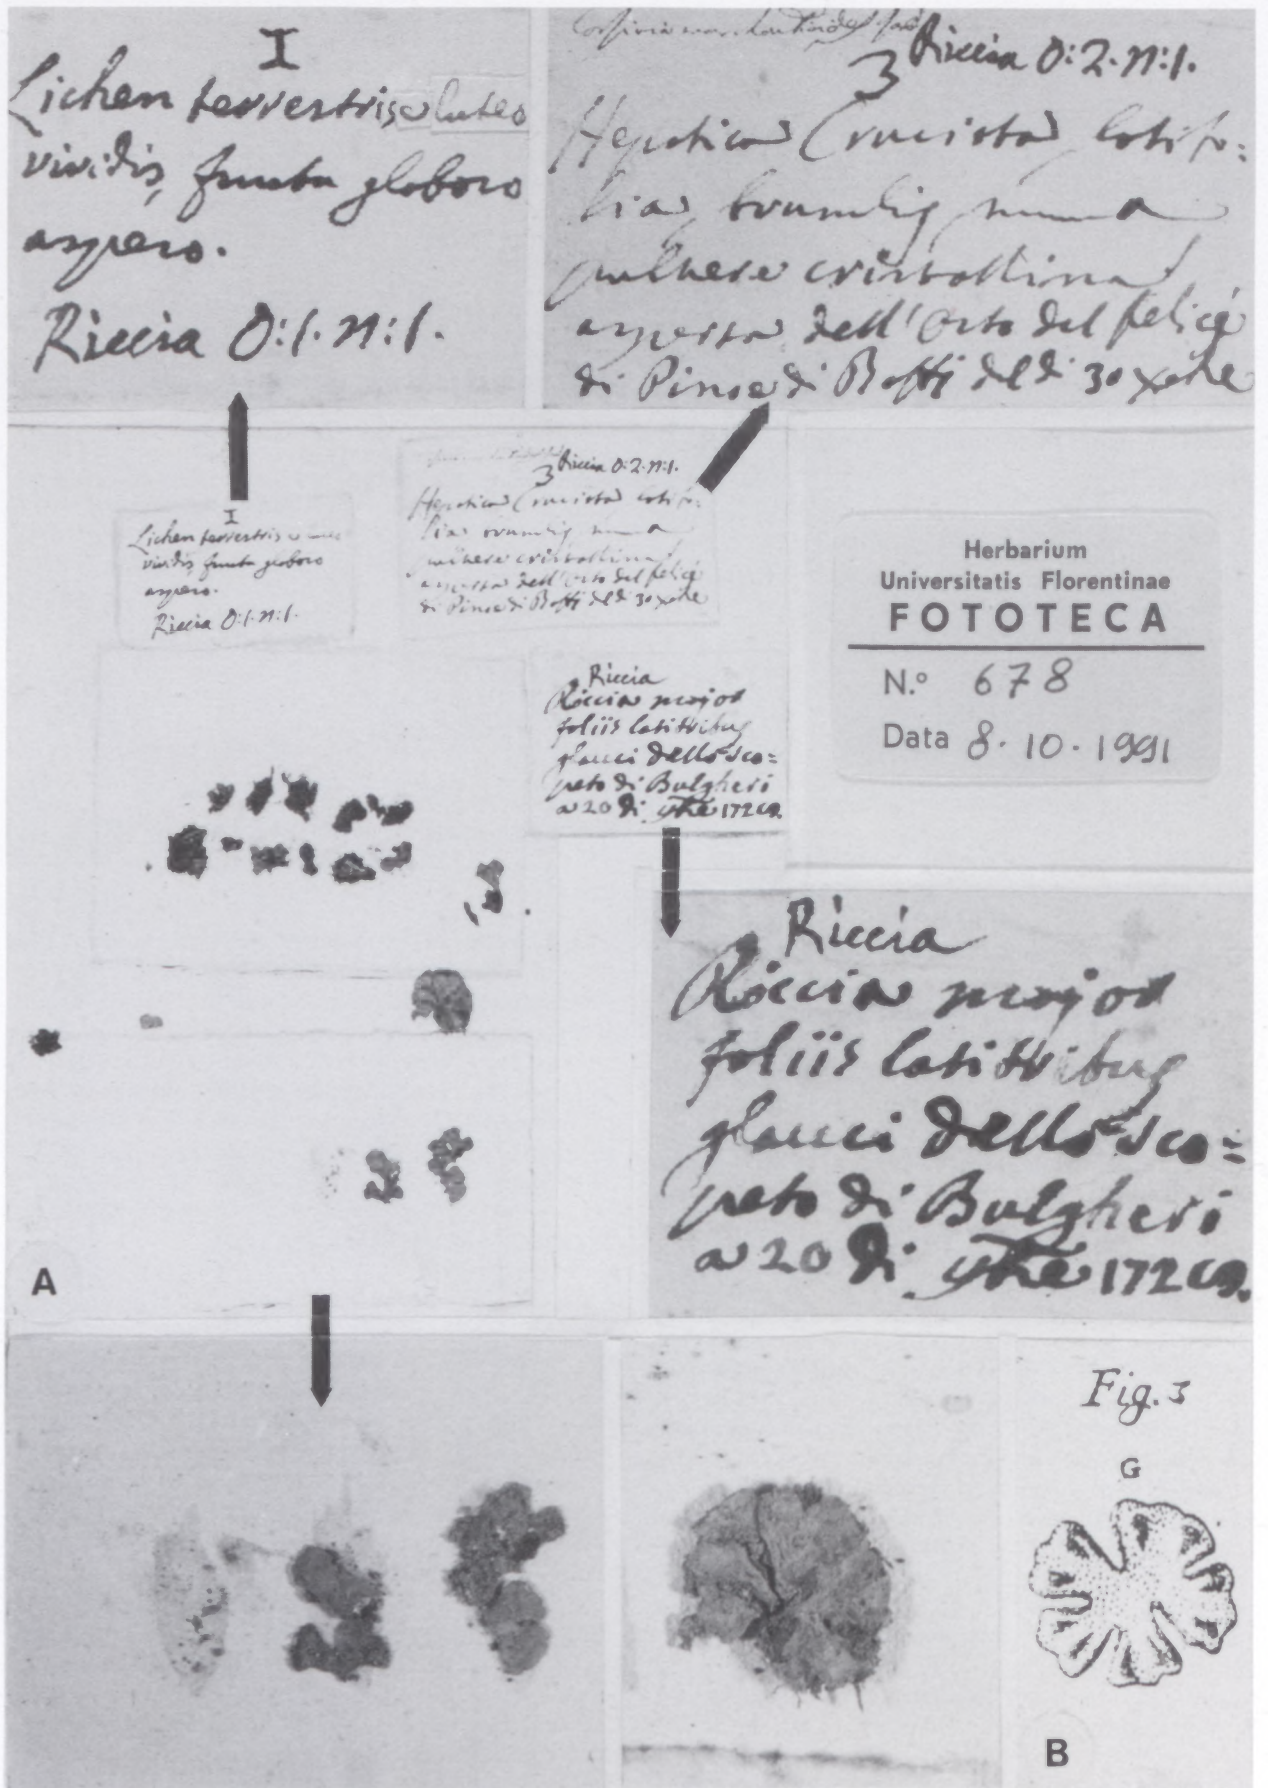 I
Lichen terrestris luteo
viridis, fructu globoso
aspero.
Riccia O:1. n:1.
3 Riccia O:2. n:1.
Hepatica Cruciata latifo:
lia,
pulvere cristallina
aspersa dell'Orto del felice
di Pinoe di Boffi del di 30
I
Lichen terrestris
viridis, fructu globoso
aspero.
Riccia O:1. n:1.
3 Riccia O:2. n:1.
Hepatica Cruciata latifo:
lia
pulvere cristallina
aspersa dell'Orto del felice
di Pinoe di Boffi del di 30
Herbarium
Universitatis Florentinae
FOTOTECA
N.º 678
Data 8.10.1991
Riccia
Riccia major
foliis latioribus
glauci dello sco=
peto di Bulgheri
a 20 di
Riccia
Riccia major
foliis latioribus
glauci dello sco=
peto di Bulgheri
a 20 di
A
Fig. 3
G
B